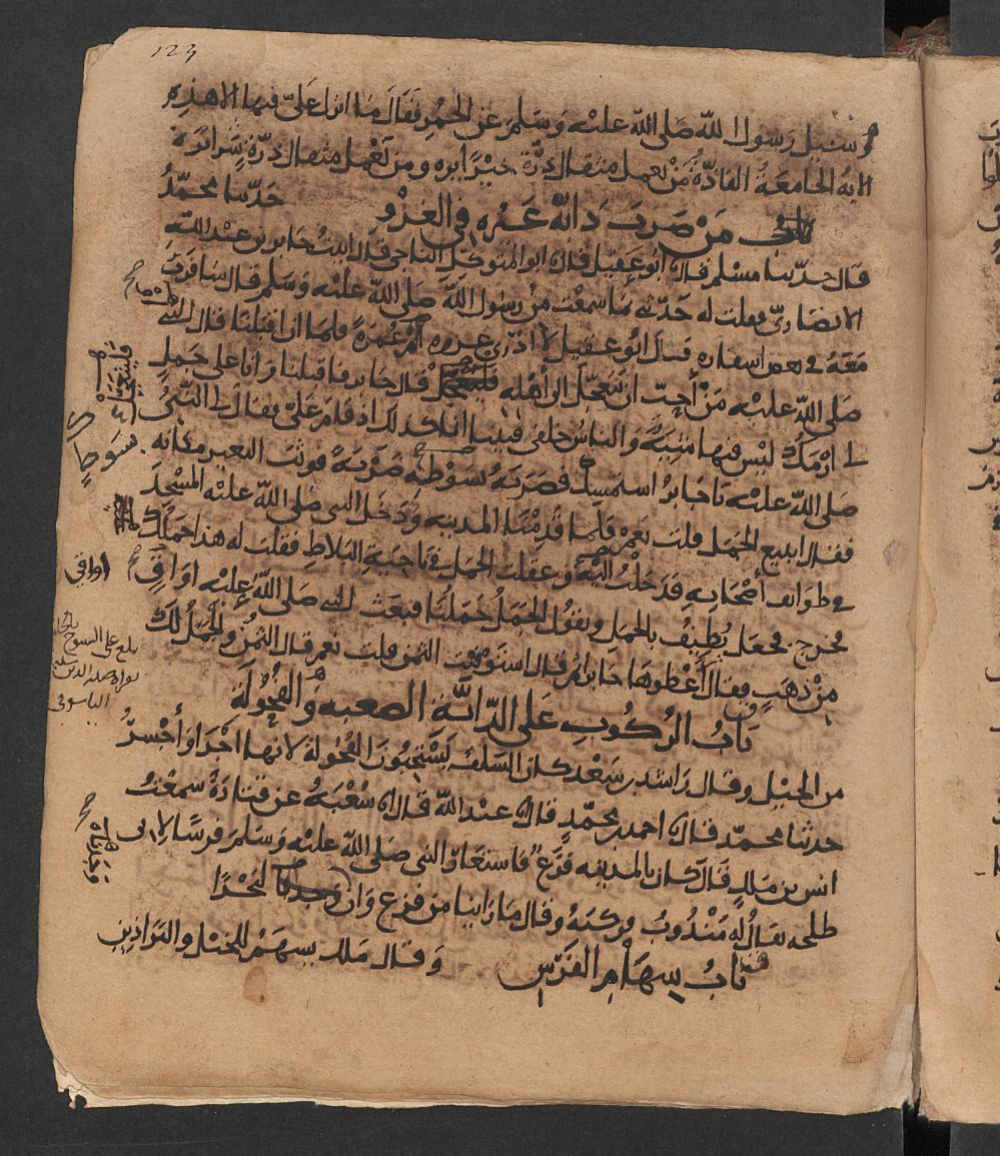 123
وسئل رسول الله صلى الله عليه وسلم عن الحمر فقال ما انزل علىّ فيها الا هذه
الاية الجامعة الفاذّة فمن يعمل مثقال ذرّة خيرًا يره ومن يعمل مثقال ذرّة شرا يره
باب من ضرب دابّة غيره في الغزو حدّثنا محمّد
قال حدّثنا مسلم قال ابو عقيل قال ابو المتوكل الناجي قال اتيت جابر بن عبد الله
الانصاري فقلت له حدّثني ما سمعت من رسول الله صلى الله عليه وسلم قال سافرت
معه في بعض اسفاره قال ابو عقيل لا ادري غزوة ام عمرة فلما ان اقبلنا قال النبي
صلى الله عليه من أحبّ ان يتعجّل الى أهله فليعجل قال جابر فاقبلنا وانا على جمل
لي ارمك ليس فيها شية والناس خلفي فبينا انا كذلك اذ قام عليّ فقال لي النبيّ
صلى الله عليه يا جابر استمسك فضربه بسوطه ضربة فوثب البعير مكانه
فقال اتبيع الجمل قلت نعم فلما قدمنا المدينة ودخل النبي صلى الله عليه المسجد
في طوائف أصحابه فدخلت اليه وعقلت الجمل في ناحية البلاط فقلت له هذا جملك
فخرج فجعل يطيف بالجمل ويقول الجمل جملنا فبعث النبي صلى الله عليه اواقي
من ذهب فقال أعطوها جابرا ثم قال استوفيت الثمن قلت نعم قال الثمن والجمل لك
باب الركوب على الدابّة الصعبة والفحولة
من الخيل وقال راشد بن سعد كان السلف يستحبون الفحولة لانها اجرا وأجسر
حدثنا محمّد قال احمد بن محمّد قال عبد الله قال شعبة عن قتادة سمعت
انس بن ملك قال كان بالمدينة فزع فاستعار النبي صلى الله عليه وسلم فرسًا لابي
طلحة يقال له مندوب فركبه وقال ما راينا من فزع وان وجدنا لبحرًا
باب سهام الفرس وقال ملك يسهم للخيل والبراذين
فليتعجل
اواقي
وجدناه